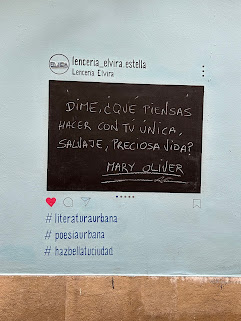 lenceria_elvira.estella
Lencería Elvira
DIME, ¿QUÉ PIENSAS
HACER CON TÚ ÚNICA,
SALVAJE, PRECIOSA VIDA?
MARY OLIVER
# literaturaurbana
# poesiaurbana
# hazbellatuciudad